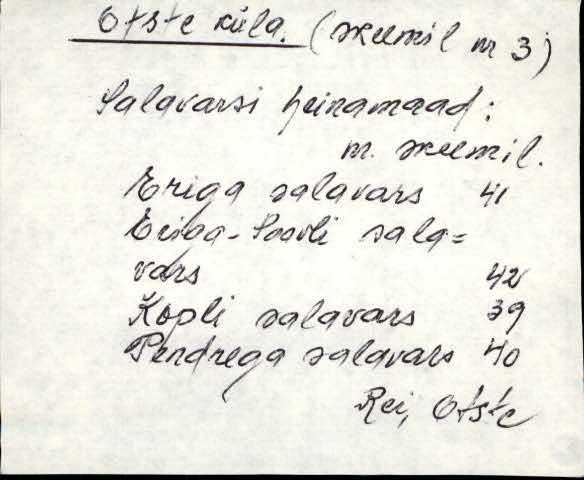 Otste küla. (skeemil nr 3)
Salavarsi heinamaad:
nr. skeemil.
Eriga salavars 41
Eeriga-Poovli sala=
vars 42
Kopli salavars 39
Pendrega salavars 40
Rei, Otste